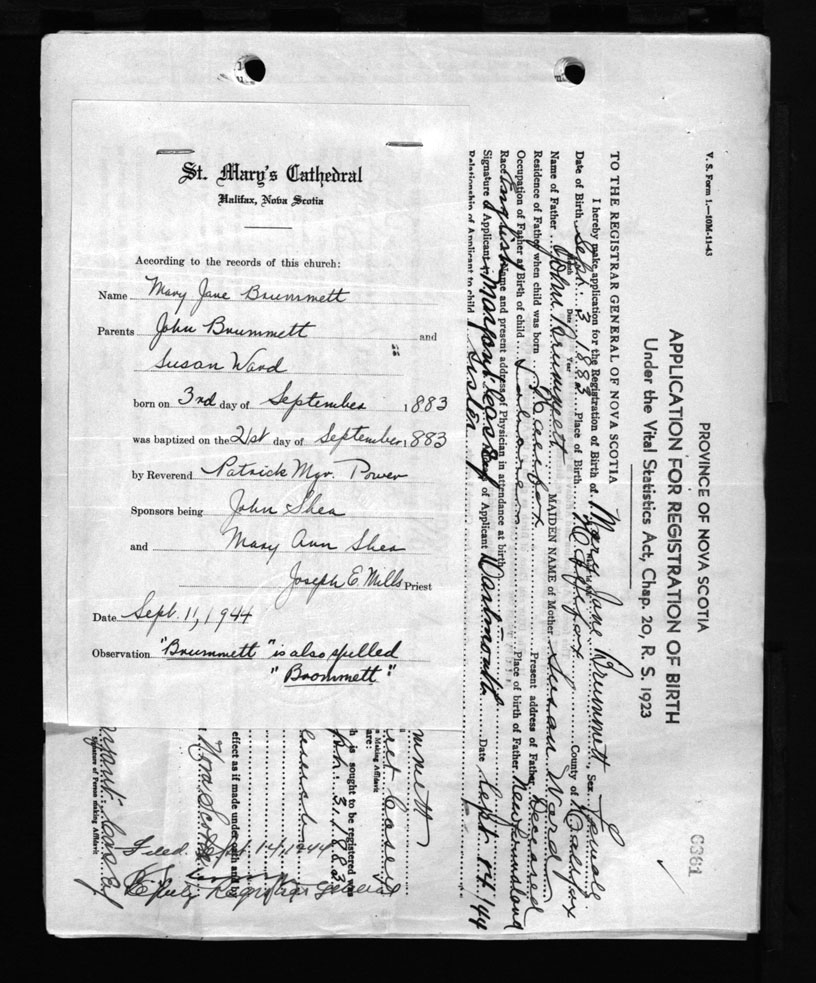 St. Mary's Cathedral
Halifax, Nova Scotia
According to the records of this church:
Name Mary Jane Brummett
Parents John Brummett and
Susan Ward
born on 3rd day of September 1883
was baptized on the 21st day of September, 1883
by Reverend Patrick Mgr. Power
Sponsors being John Shea
and Mary Ann Shea
Joseph E. Mills Priest
Date Sept. 11, 1944
Observation "Brummett" is also spelled
"Brommett"
V. S. Form 1.—10M-11-43
PROVINCE OF NOVA SCOTIA
APPLICATION FOR REGISTRATION OF BIRTH
Under the Vital Statistics Act, Chap. 20, R. S. 1923
C361
TO THE REGISTRAR GENERAL OF NOVA SCOTIA
I hereby make application for the Registration of Birth of Mary Jane Brummett, Sex Female
Date of Birth Sept. 3 1883 Place of Birth Halifax County of Halifax
Month Date Year
Name of Father John Brummett MAIDEN NAME of Mother Susan Ward
Residence of Father when child was born Halifax Present address of Father Deceased
Occupation of Father at Birth of child Labourer Place of birth of Father Newfoundland
Race English Name and present address of Physician in attendance at birth
Signature of Applicant Margaret Casey of Applicant Dartmouth Date Sept 14/44
Relationship of Applicant to child Sister
mmett
ret Casey
n Making Affidavit
are:
h is sought to be registered was
pt. 3, 1883
effect as if made under oath and by
Nova Scotia
garet Casey
Signature of Person making Affidavit
Filed Sept. 14, 1944
Deputy Registrar General